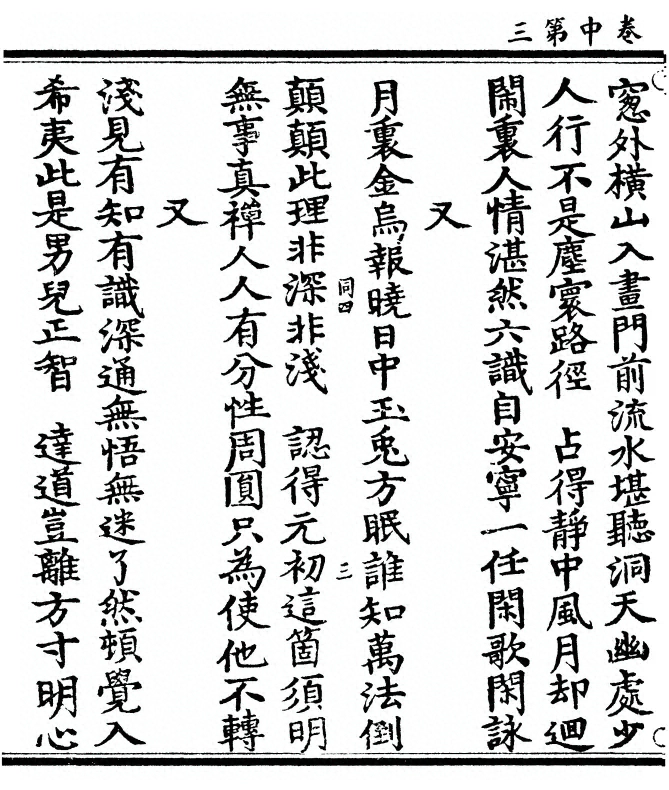 卷中第三
窻外橫山入畫門前流水堪聽洞天幽處少
人行不是塵寰路徑　占得靜中風月却迴
閙裏人情湛然六識自安寧一任閑歌閑詠
又
月裏金烏報曉日中玉兔方眠誰知萬法倒
同四
三
顛顛此理非深非淺　認得元初這箇須明
無事真禪人人有分性周圓只為使他不轉
又
淺見有知有識深通無悟無迷了然頓覺入
希夷此是男兒正智　達道豈離方寸明心